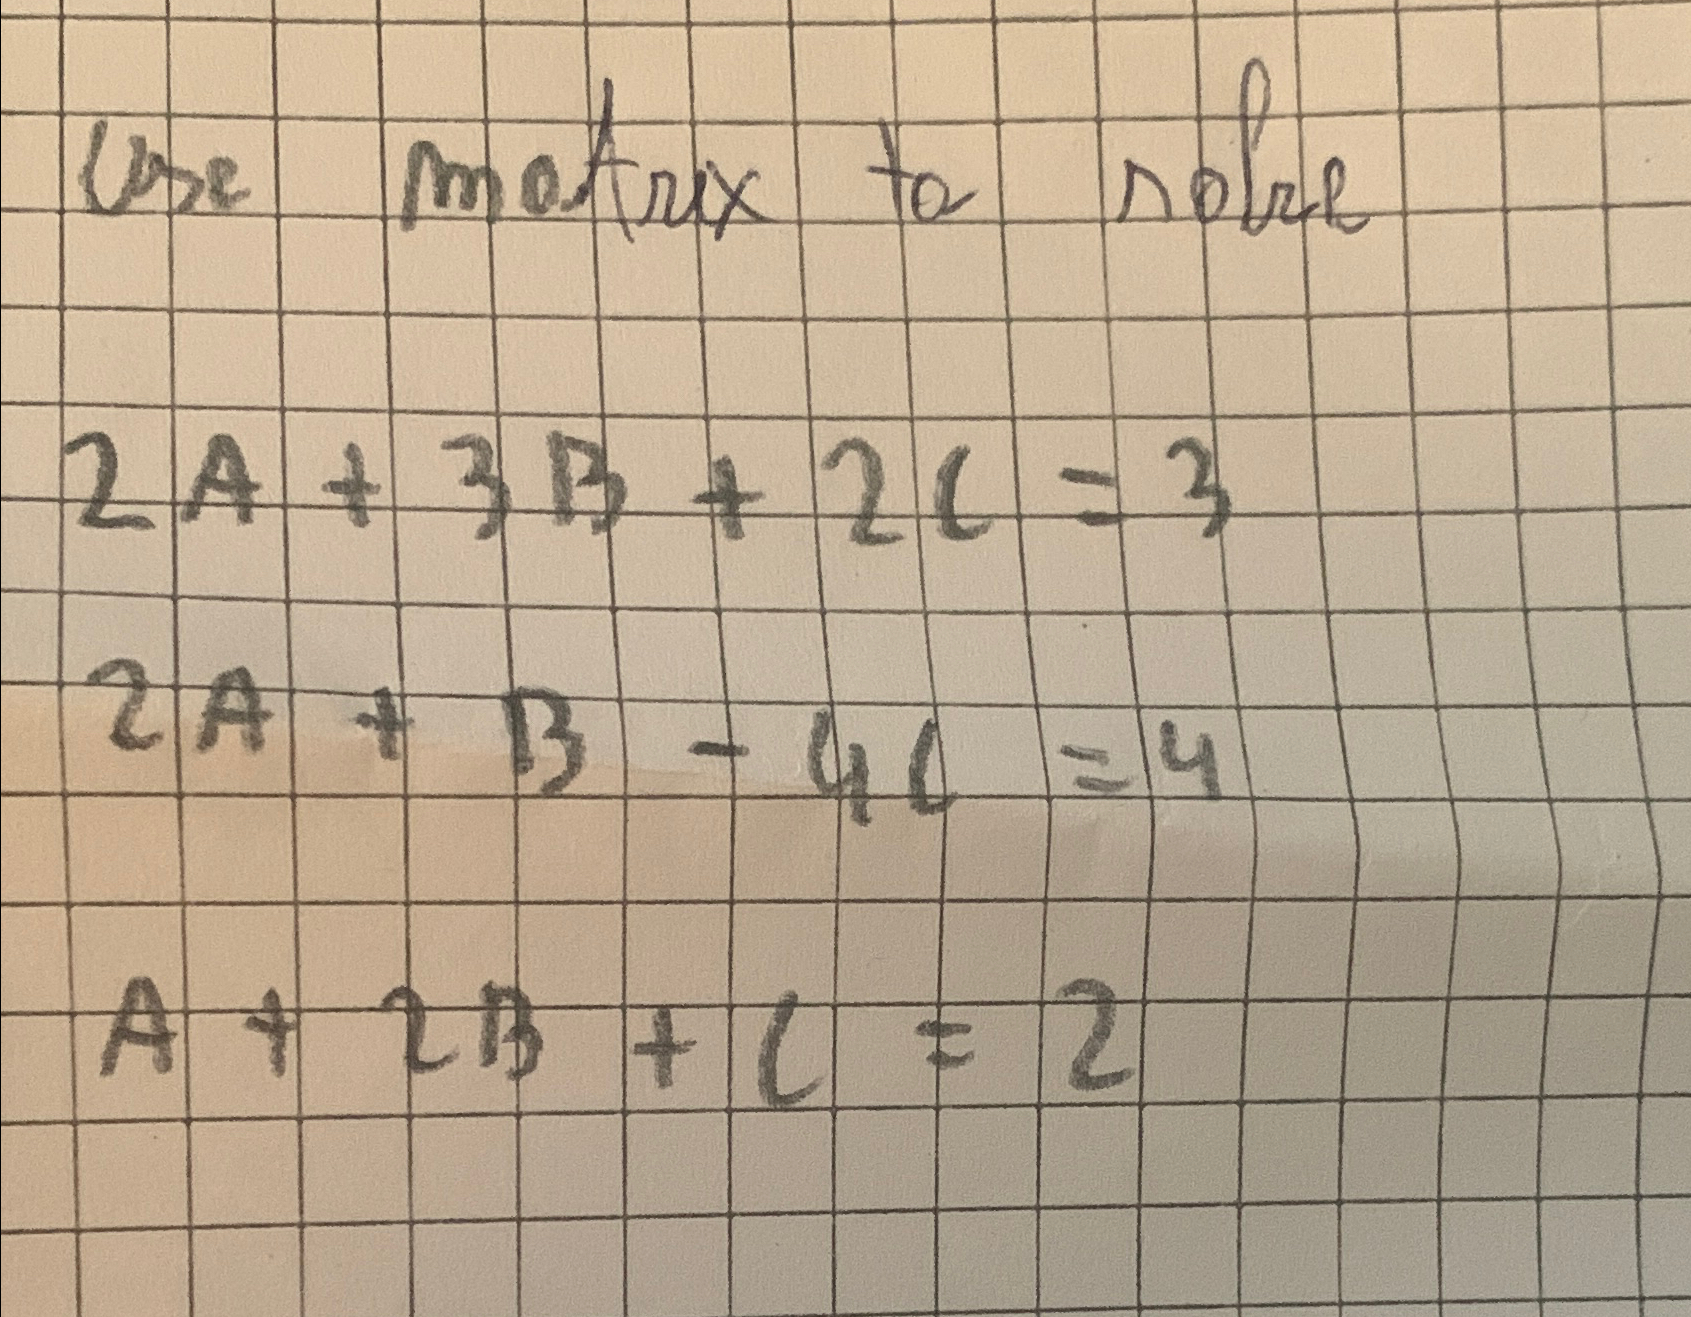 Use matrix to solve
2A + 3B + 2C = 3
2A + B - 4C = 4
A + 2B + C = 2